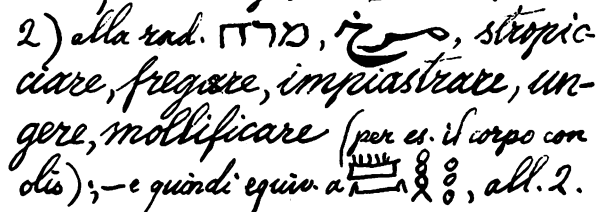 2) alla rad. מרח, مرخ, stropic-
ciare, fregare, impiastrare, un-
gere, mollificare (per es. il corpo con
olio); — e quindi equiv. a , all. 2.